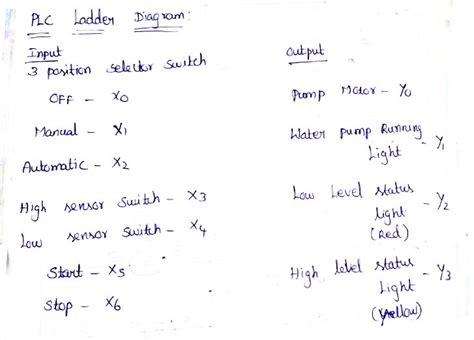 PLC Ladder Diagram:
Input
3 position selector switch
OFF - X0
Manual - X1
Automatic - X2
High sensor switch - X3
Low sensor switch - X4
Start - X5
Stop - X6
Output
Pump Motor - Y0
Water pump Running
Light - Y1
Low Level status
light - Y2
(Red)
High level status
Light - Y3
(Yellow)